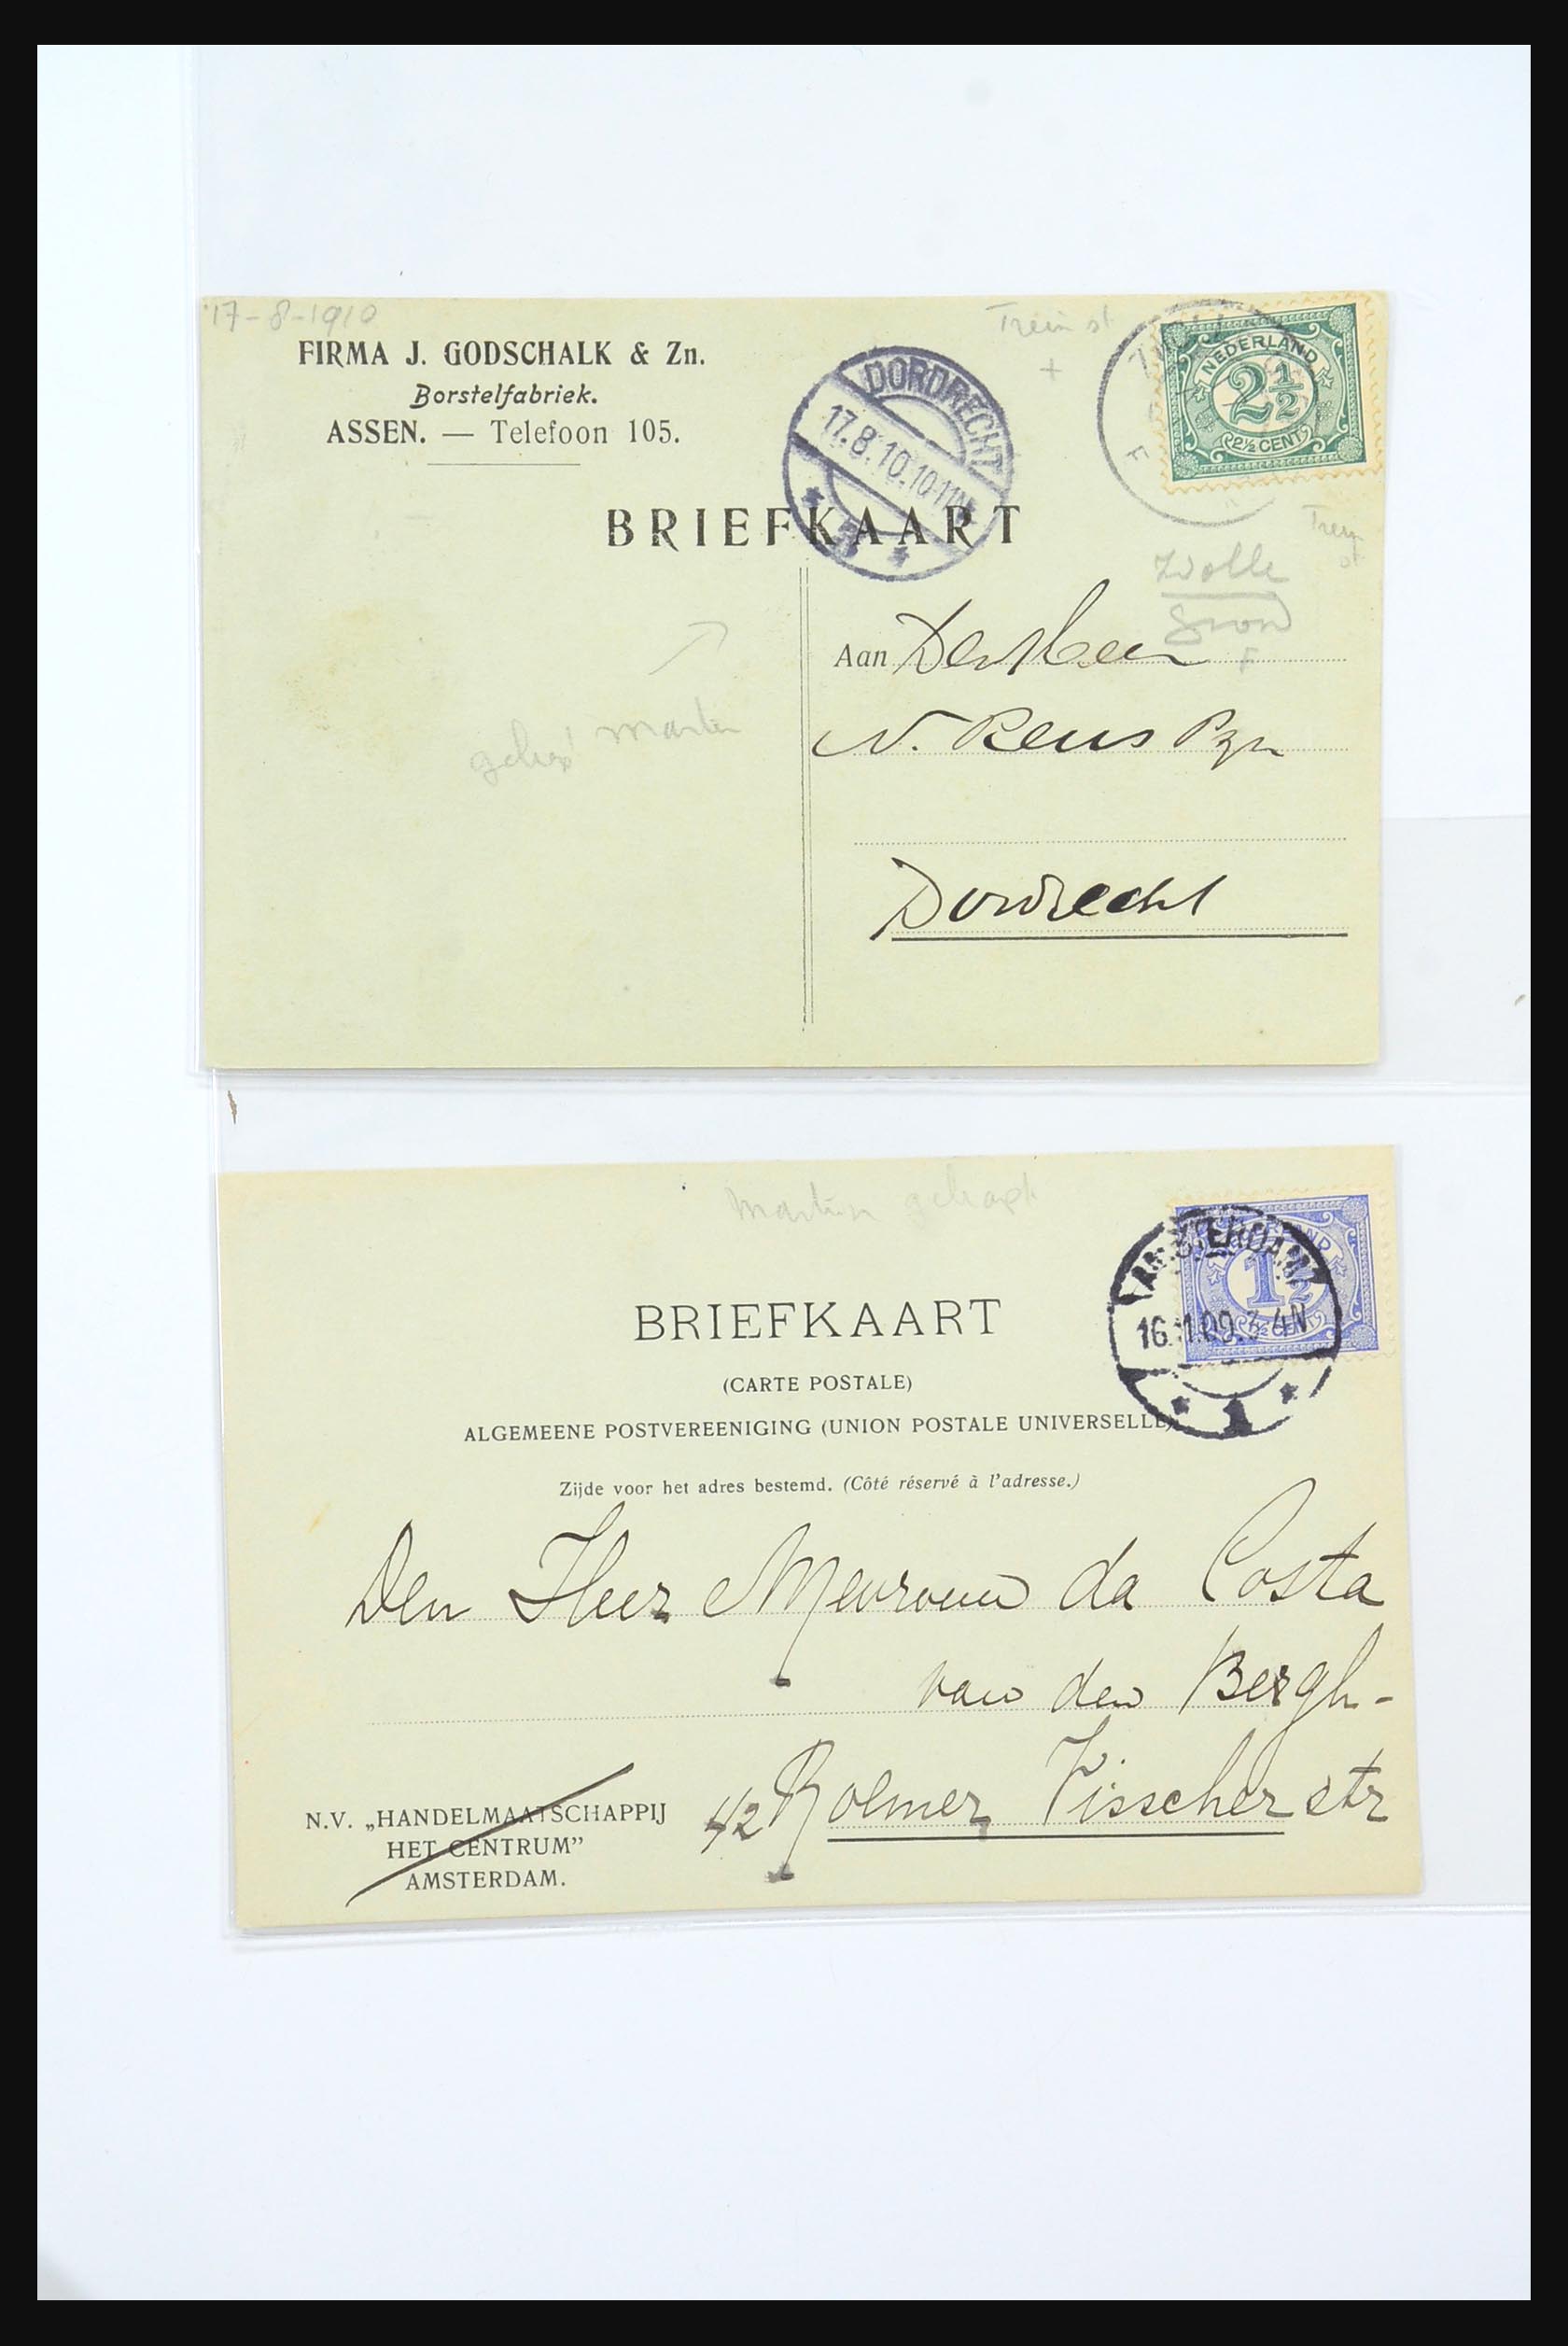 17-8-1910
Trein st
FIRMA J. GODSCHALK & Zn.
Borstelfabriek.
ASSEN. — Telefoon 105.
DORDRECHT
17.8.10.10-11N
NEDERLAND
2½
2½ CENT
F
BRIEFKAART
Trein st
Zwolle
F
Aan Den Heer
N. Reus Pzn
Dordrecht
BRIEFKAART
AMSTERDAM
1½
1
(CARTE POSTALE)
ALGEMEENE POSTVEREENIGING (UNION POSTALE UNIVERSELLE)
Zijde voor het adres bestemd. (Côté réservé à l'adresse.)
Den Heer Mevrouw da Costa
van den Bergh-
42 Roemer Visscherstr
N.V. „HANDELMAATSCHAPPIJ
HET CENTRUM”
AMSTERDAM.